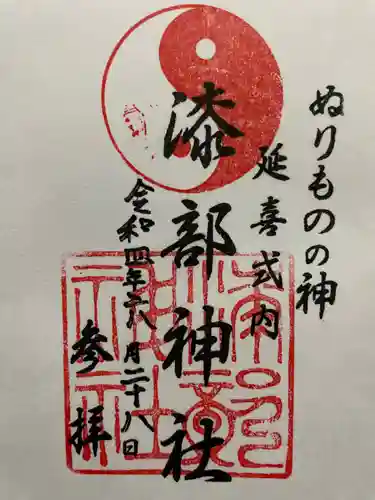 ぬりものの神
延喜式内
漆部神社
令和四年六月二十八日
参拝